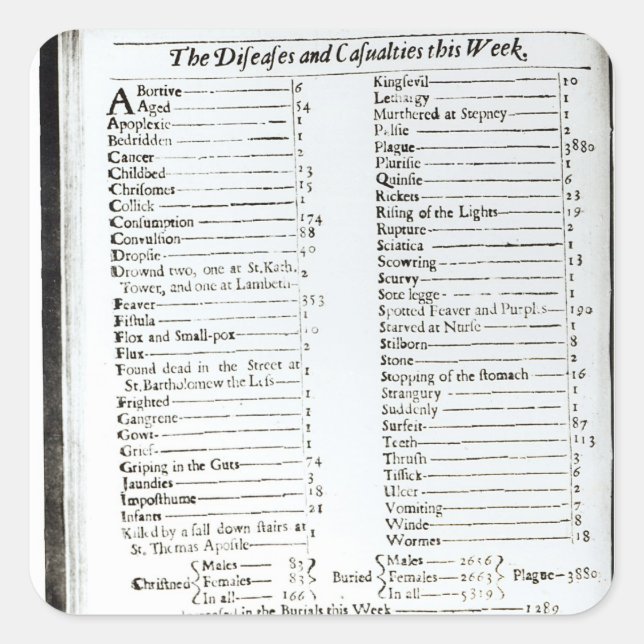 The Diſeaſes and Caſualties this Week.
ABortive 6
Aged 54
Apoplexie 1
Bedridden 1
Cancer 2
Childbed 23
Chriſomes 15
Collick 1
Conſumption 174
Convulſion 88
Dropſie 40
Drownd two, one at St.Kath. Tower, and one at Lambeth 2
Feaver 353
Fiſtula 1
Flox and Small-pox 10
Flux 2
Found dead in the Street at St.Bartholomew the Leſs 1
Frighted 1
Gangrene 1
Gowt 1
Grief 1
Griping in the Guts 74
Jaundies 3
Impoſthume 18
Infants 21
Killed by a fall down ſtairs at St. Thomas Apoſtle 1
Kingſevil 10
Lethargy 1
Murthered at Stepney 1
Palſie 2
Plague 3880
Pluriſie 1
Quinſie 6
Rickets 23
Riſing of the Lights 19
Rupture 2
Sciatica 1
Scowring 13
Scurvy 1
Sore legge 1
Spotted Feaver and Purples 190
Starved at Nurſe 1
Stilborn 8
Stone 2
Stopping of the ſtomach 16
Strangury 1
Suddenly 1
Surfeit 87
Teeth 113
Thruſh 3
Tiſſick 6
Ulcer 2
Vomiting 7
Winde 8
Wormes 18
Chriſtned { Males 83 Females 83 In all 166 }
Buried { Males 2656 Females 2663 In all 5319 }
Plague 3880
in the Burials this Week 1289